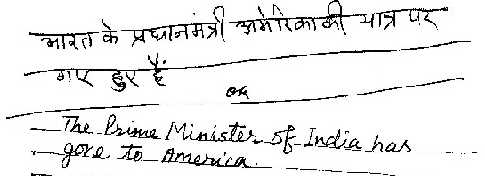 भारत के प्रधानमंत्री अमेरिका की यात्रा पर
गए हुए हैं
OR
The Prime Minister of India has
gone to America.